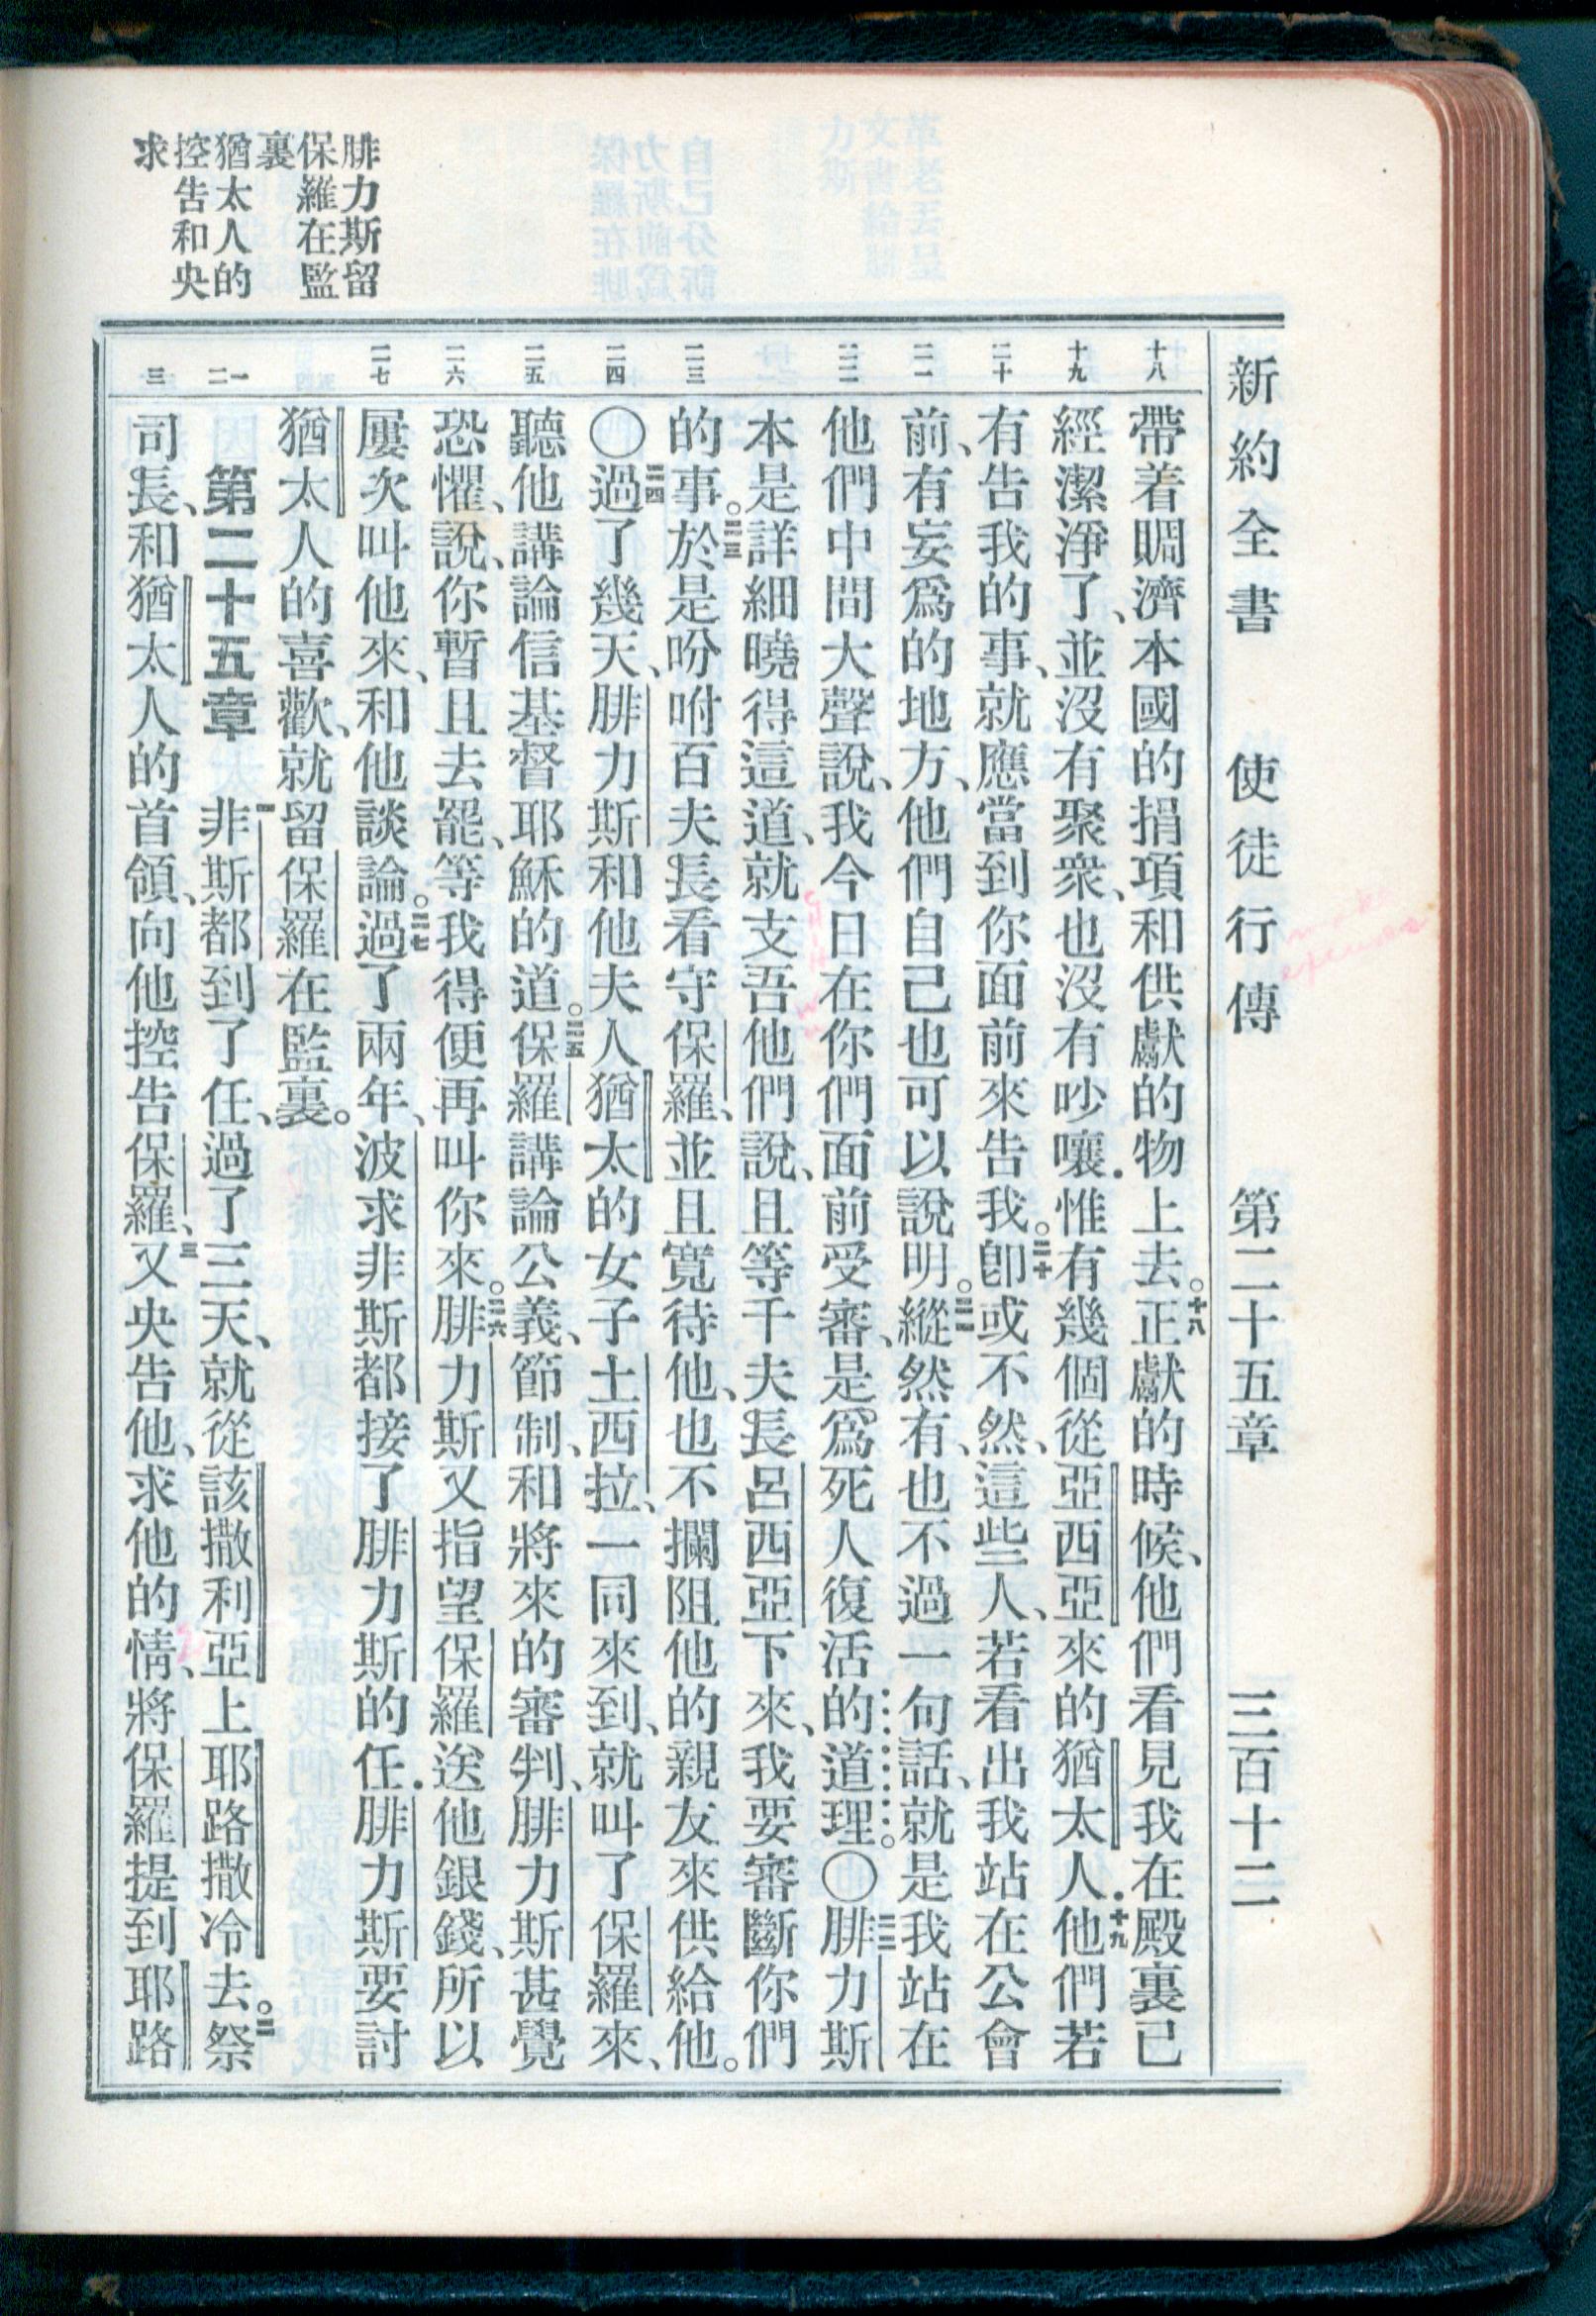 新約全書　使徒行傳　第二十五章　三百十二
十八
帶着賙濟本國的捐項和供獻的物上去。十八正獻的時候、他們看見我在殿裏已
十九
經潔淨了、並沒有聚衆、也沒有吵嚷．惟有幾個從亞西亞來的猶太人．十九他們若
二十
有告我的事、就應當到你面前來告我。二十卽或不然、這些人、若看出我站在公會
二一
前、有妄爲的地方、他們自己也可以說明。二一縱然有、也不過一句話、就是我站在
二二
他們中間大聲說、我今日在你們面前受審、是爲死人復活的道理。〇二二腓力斯
本是詳細曉得這道、就支吾他們說、且等千夫長呂西亞下來、我要審斷你們
二三
的事。二三於是吩咐百夫長看守保羅、並且寬待他、也不攔阻他的親友來供給他。
二四
〇二四過了幾天、腓力斯和他夫人猶太的女子土西拉、一同來到、就叫了保羅來、
二五
聽他講論信基督耶穌的道。二五保羅講論公義、節制、和將來的審判、腓力斯甚覺
二六
恐懼、說、你暫且去罷、等我得便再叫你來。二六腓力斯又指望保羅送他銀錢、所以
二七
屢次叫他來、和他談論。二七過了兩年、波求非斯都接了腓力斯的任．腓力斯要討
猶太人的喜歡、就留保羅在監裏。
一 二
第二十五章　一非斯都到了任、過了三天、就從該撒利亞上耶路撒冷去。二祭
三
司長、和猶太人的首領、向他控告保羅、三又央告他、求他的情、將保羅提到耶路
腓力斯留
保羅在監
裏
猶太人的
控告和央
求
make
excuses